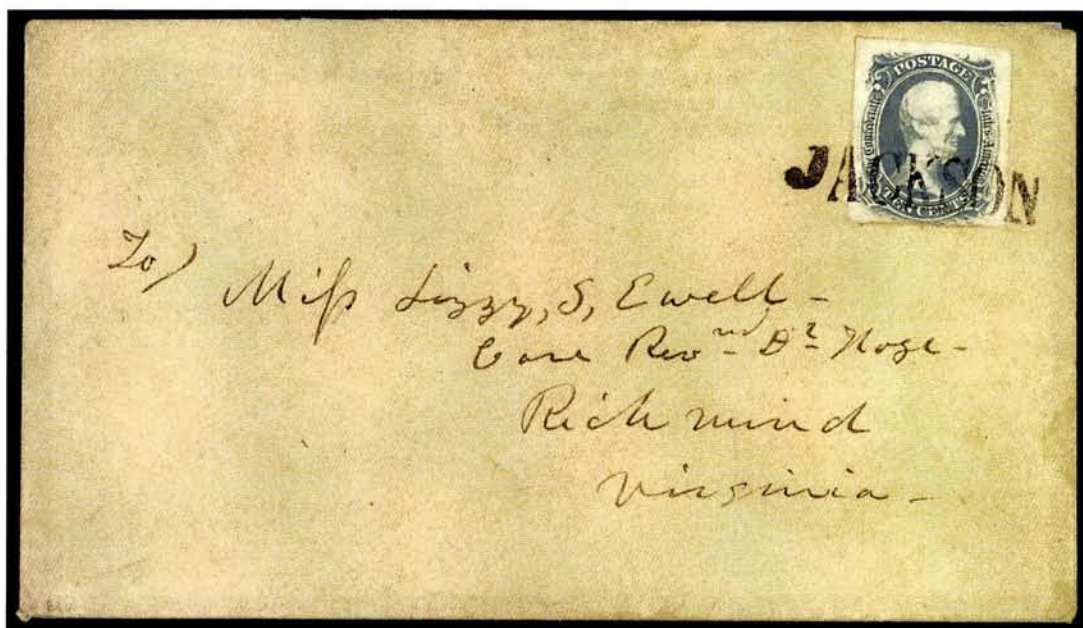 POSTAGE
Confederate States America
TEN CENTS
JACKSON
To)
Miss Lizzy, S, Ewell -
Care Revnd Dr Hoge -
Richmind
Virginia -